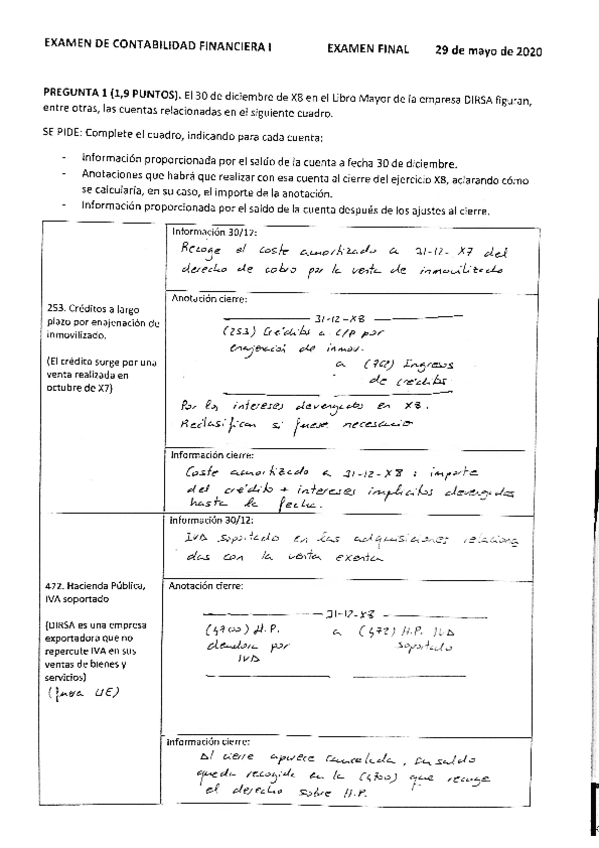 EXAMEN DE CONTABILIDAD FINANCIERA I EXAMEN FINAL 29 de mayo de 2020
PREGUNTA 1 (1,9 PUNTOS). El 30 de diciembre de X8 en el Libro Mayor de la empresa DIRSA figuran,
entre otras, las cuentas relacionadas en el siguiente cuadro.
SE PIDE: Complete el cuadro, indicando para cada cuenta:
- Información proporcionada por el saldo de la cuenta a fecha 30 de diciembre.
- Anotaciones que habrá que realizar con esa cuenta al cierre del ejercicio X8, aclarando cómo
se calcularía, en su caso, el importe de la anotación.
- Información proporcionada por el saldo de la cuenta después de los ajustes al cierre.
253. Créditos a largo
plazo por enajenación de
inmovilizado.
(El crédito surge por una
venta realizada en
octubre de X7)
Información 30/12:
Recoge el coste amortizado a 31-12-X7 del
derecho de cobro por la venta de inmovilizado
Anotación cierre:
31-12-X8
(253) Créditos a L/P por
enajenación de inmov.
a (762) Ingresos
de créditos
Por los intereses devengados en X8.
Reclasificar si fuese necesario
Información cierre:
Coste amortizado a 31-12-X8: importe
del crédito + intereses implícitos devengados
hasta la fecha.
472. Hacienda Pública,
IVA soportado
(DIRSA es una empresa
exportadora que no
repercute IVA en sus
ventas de bienes y
servicios)
(fuera UE)
Información 30/12:
IVA soportado en las adquisiciones relaciona
das con la venta exenta
Anotación cierre:
31-12-X8
(4700) H.P. a (472) H.P. IVA
deudora por soportado
IVA
Información cierre:
Al cierre aparece cancelada, su saldo
queda recogido en la (4700) que recoge
el derecho sobre H.P.